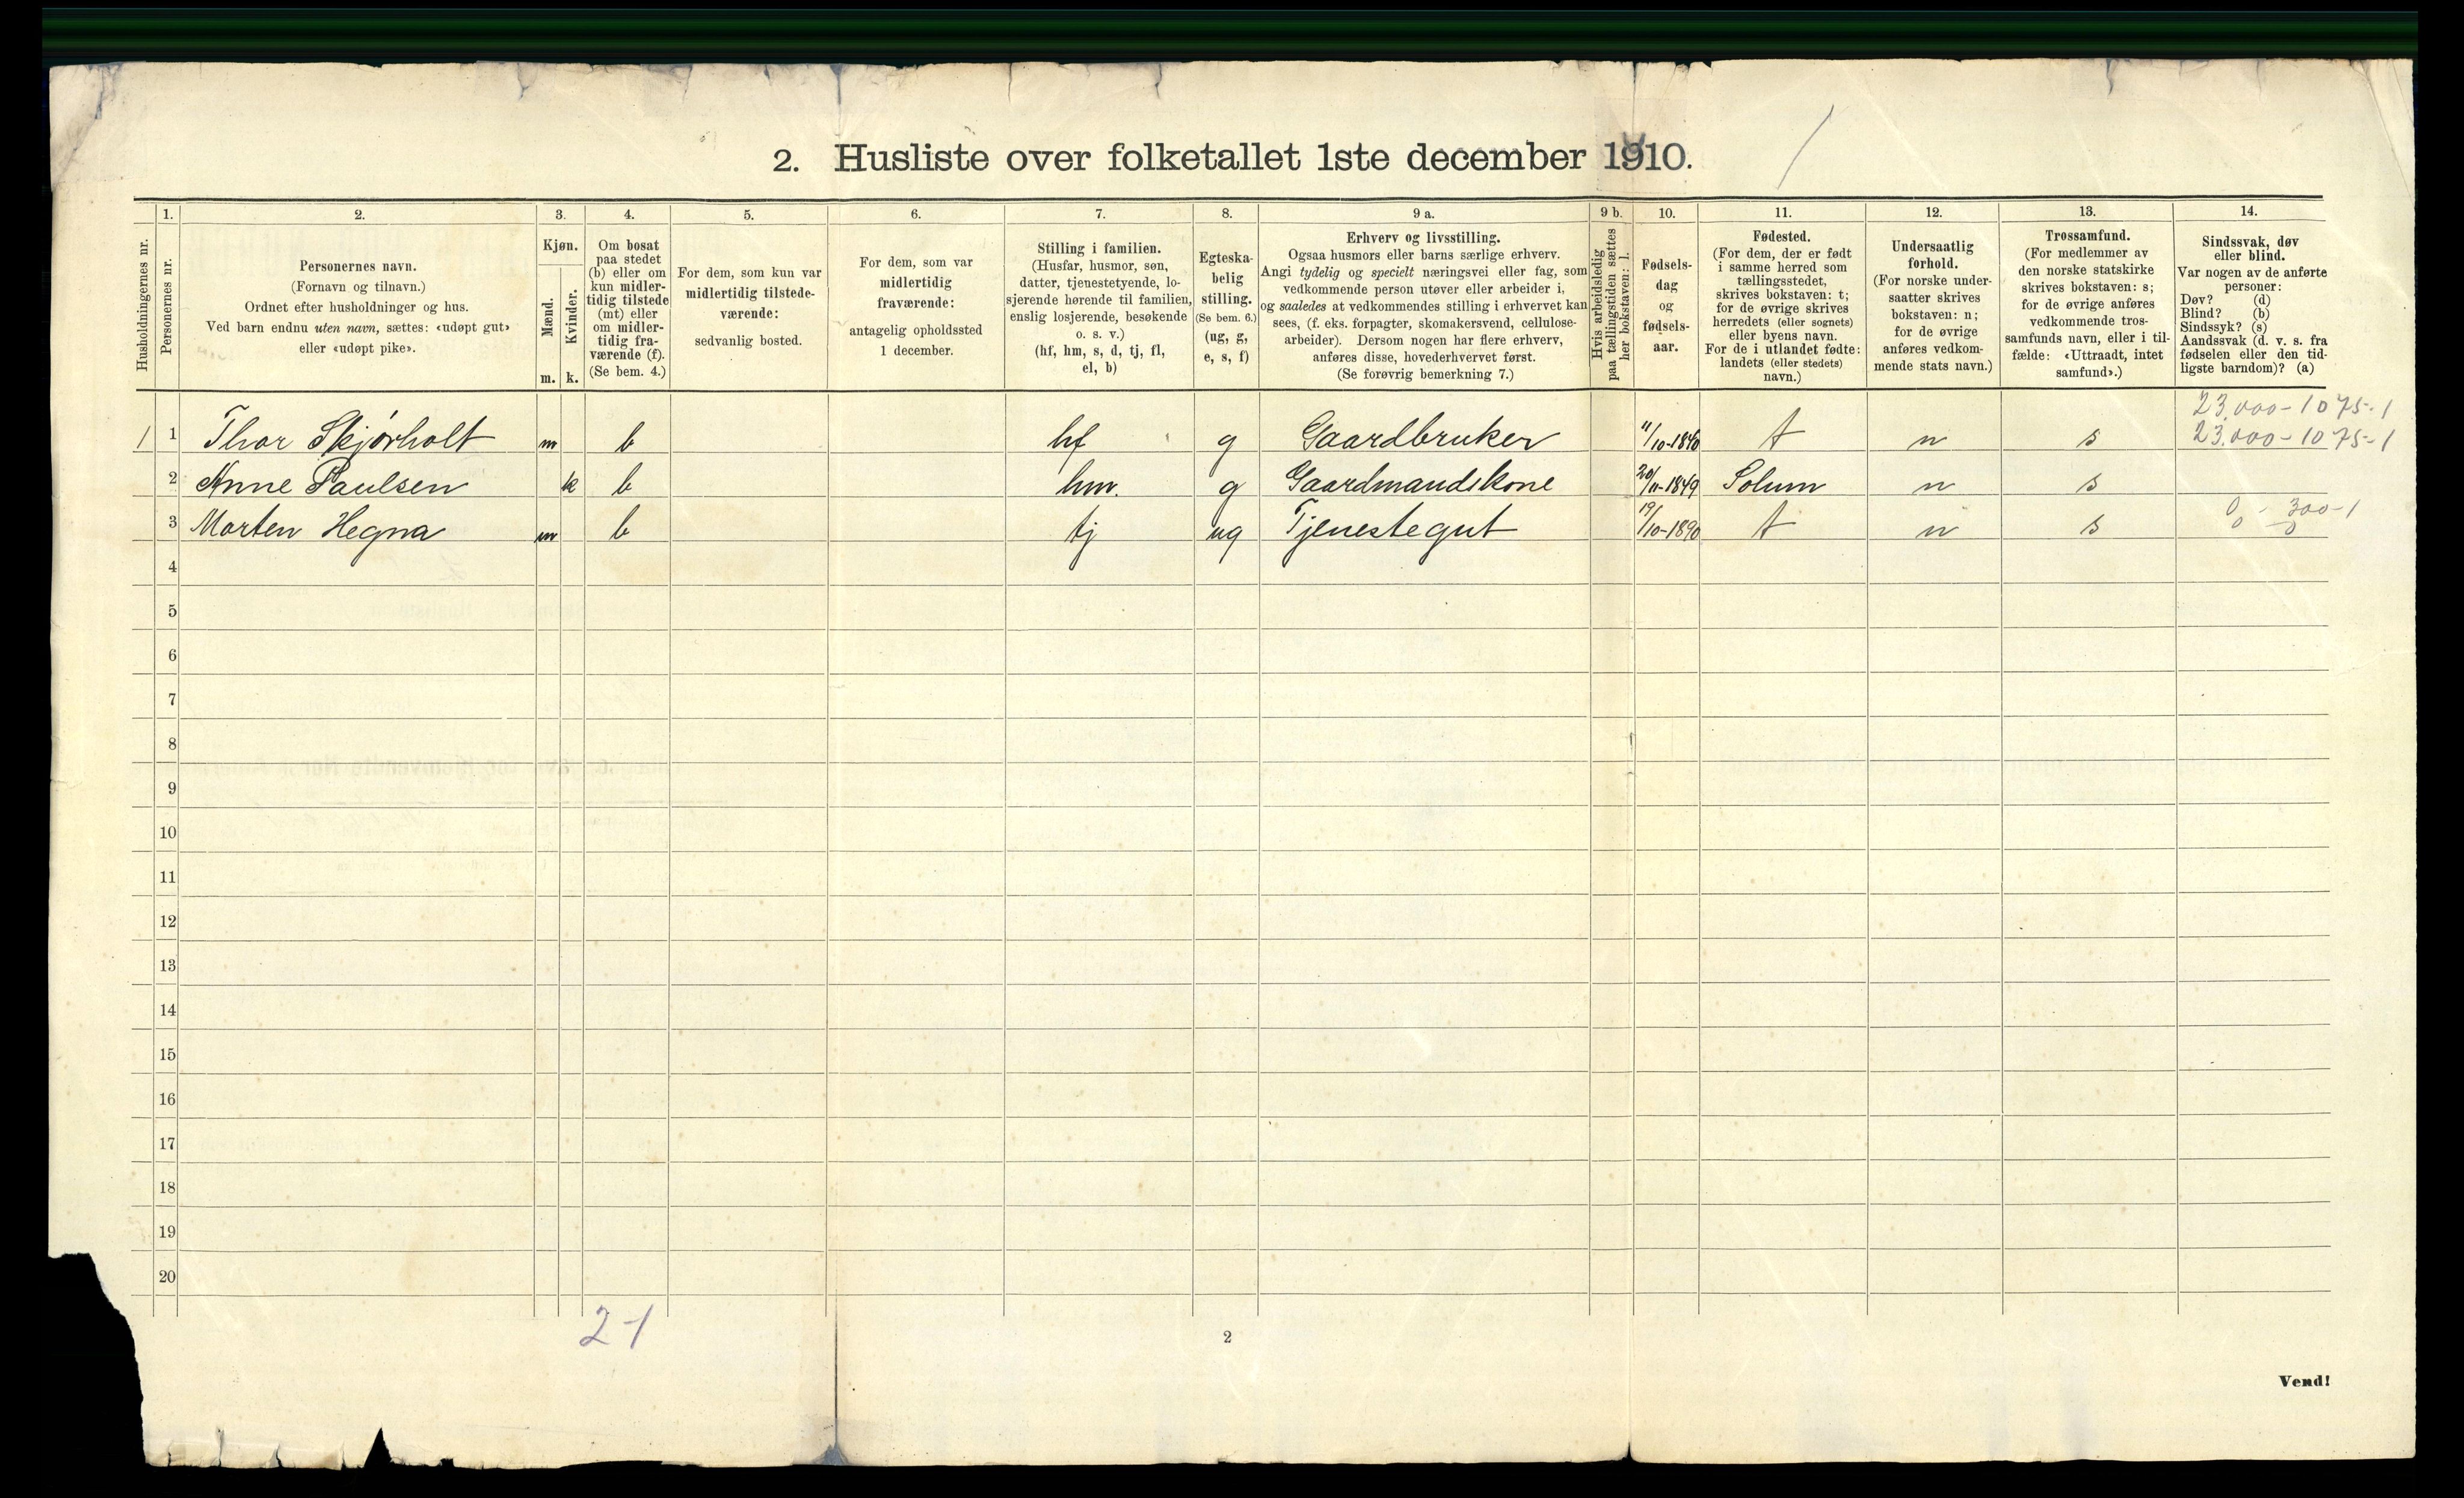 2. Husliste over folketallet 1ste december 1910.
1. 2. 3. 4. 5. 6. 7. 8. 9 a. 9 b. 10. 11. 12. 13. 14.
Husholdningernes nr.
Personernes nr.
Personernes navn.
(Fornavn og tilnavn.)
Ordnet efter husholdninger og hus.
Ved barn endnu uten navn, sættes: «udøpt gut»
eller «udøpt pike».
Kjøn.
Mænd.
Kvinder.
m. k.
Om bosat
paa stedet
(b) eller om
kun midler-
tidig tilstede
(mt) eller
om midler-
tidig fra-
værende (f).
(Se bem. 4.)
For dem, som kun var
midlertidig tilstede-
værende:
sedvanlig bosted.
For dem, som var
midlertidig
fraværende:
antagelig opholdssted
1 december.
Stilling i familien.
(Husfar, husmor, søn,
datter, tjenestetyende, lo-
sjerende hørende til familien,
enslig losjerende, besøkende
o. s. v.)
(hf, hm, s, d, tj, fl,
el, b)
Egteska-
belig
stilling.
(Se bem. 6.)
(ug, g,
e, s, f)
Erhverv og livsstilling.
Ogsaa husmors eller barns særlige erhverv.
Angi tydelig og specielt næringsvei eller fag, som
vedkommende person utøver eller arbeider i,
og saaledes at vedkommendes stilling i erhvervet kan
sees, (f. eks. forpagter, skomakersvend, cellulose-
arbeider). Dersom nogen har flere erhverv,
anføres disse, hovederhvervet først.
(Se forøvrig bemerkning 7.)
Hvis arbeidsledig
paa tællingstiden sættes
her bokstaven: l.
Fødsels-
dag
og
fødsels-
aar.
Fødested.
(For dem, der er født
i samme herred som
tællingsstedet,
skrives bokstaven: t;
for de øvrige skrives
herredets (eller sognets)
eller byens navn.
For de i utlandet fødte:
landets (eller stedets)
navn.)
Undersaatlig
forhold.
(For norske under-
saatter skrives
bokstaven: n;
for de øvrige
anføres vedkom-
mende stats navn.)
Trossamfund.
(For medlemmer av
den norske statskirke
skrives bokstaven: s;
for de øvrige anføres
vedkommende tros-
samfunds navn, eller i til-
fælde: «Uttraadt, intet
samfund».)
Sindssvak, døv
eller blind.
Var nogen av de anførte
personer:
Døv? (d)
Blind? (b)
Sindssyk? (s)
Aandssvak (d. v. s. fra
fødselen eller den tid-
ligste barndom)? (a)
23.000-1075-1
1 1 Thor Skjørholt m b hf g Gaardbruker 11/10-1840 t n s 23.000-1075-1
2 Anne Paulsen k b hm. g Gaardmandskone 20/11-1849 Solum n s
3 Morten Hegna m b tj ug Tjenestegut 19/10-1890 t n s 0 - 300-1
0 - 0
4
5
6
7
8
9
10
11
12
13
14
15
16
17
18
19
20
2-1
2
Vend!